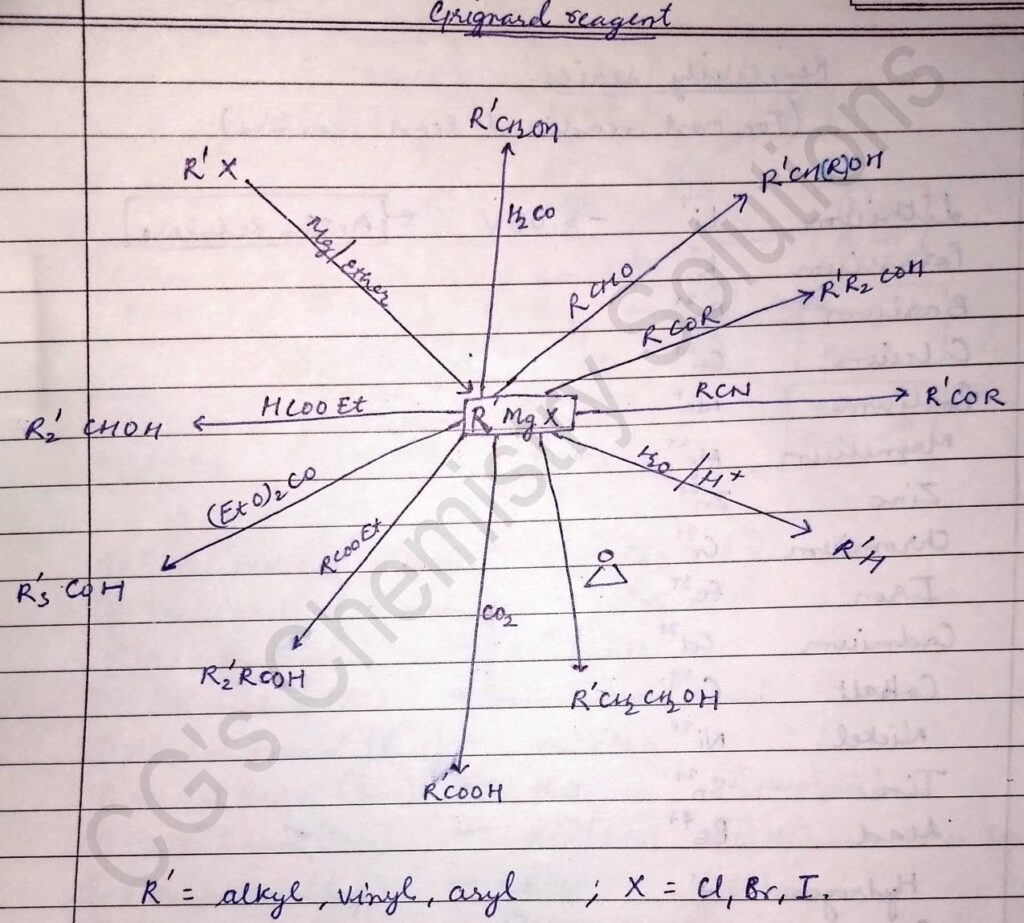 Grignard reagent
R'CH2OH
R'X
R'CH(R)OH
H2CO
Mg/ether
RCHO
R'R2COH
RCOR
RCN
R'COR
HCOOEt
R2'CHOH
R'MgX
H2O/H+
(EtO)2CO
R'H
RCOOEt
O
R3'COH
CO2
R2'RCOH
R'CH2CH2OH
R'COOH
R' = alkyl, vinyl, aryl ; X = Cl, Br, I.
CG's Chemistry Solutions